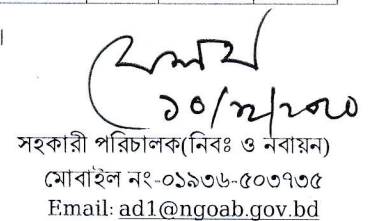 ১০/২/২০২০
সহকারী পরিচালক(নিবঃ ও নবায়ন)
মোবাইল নং-০১৯৩৬-৫০৩৭৩৫
Email: ad1@ngoab.gov.bd